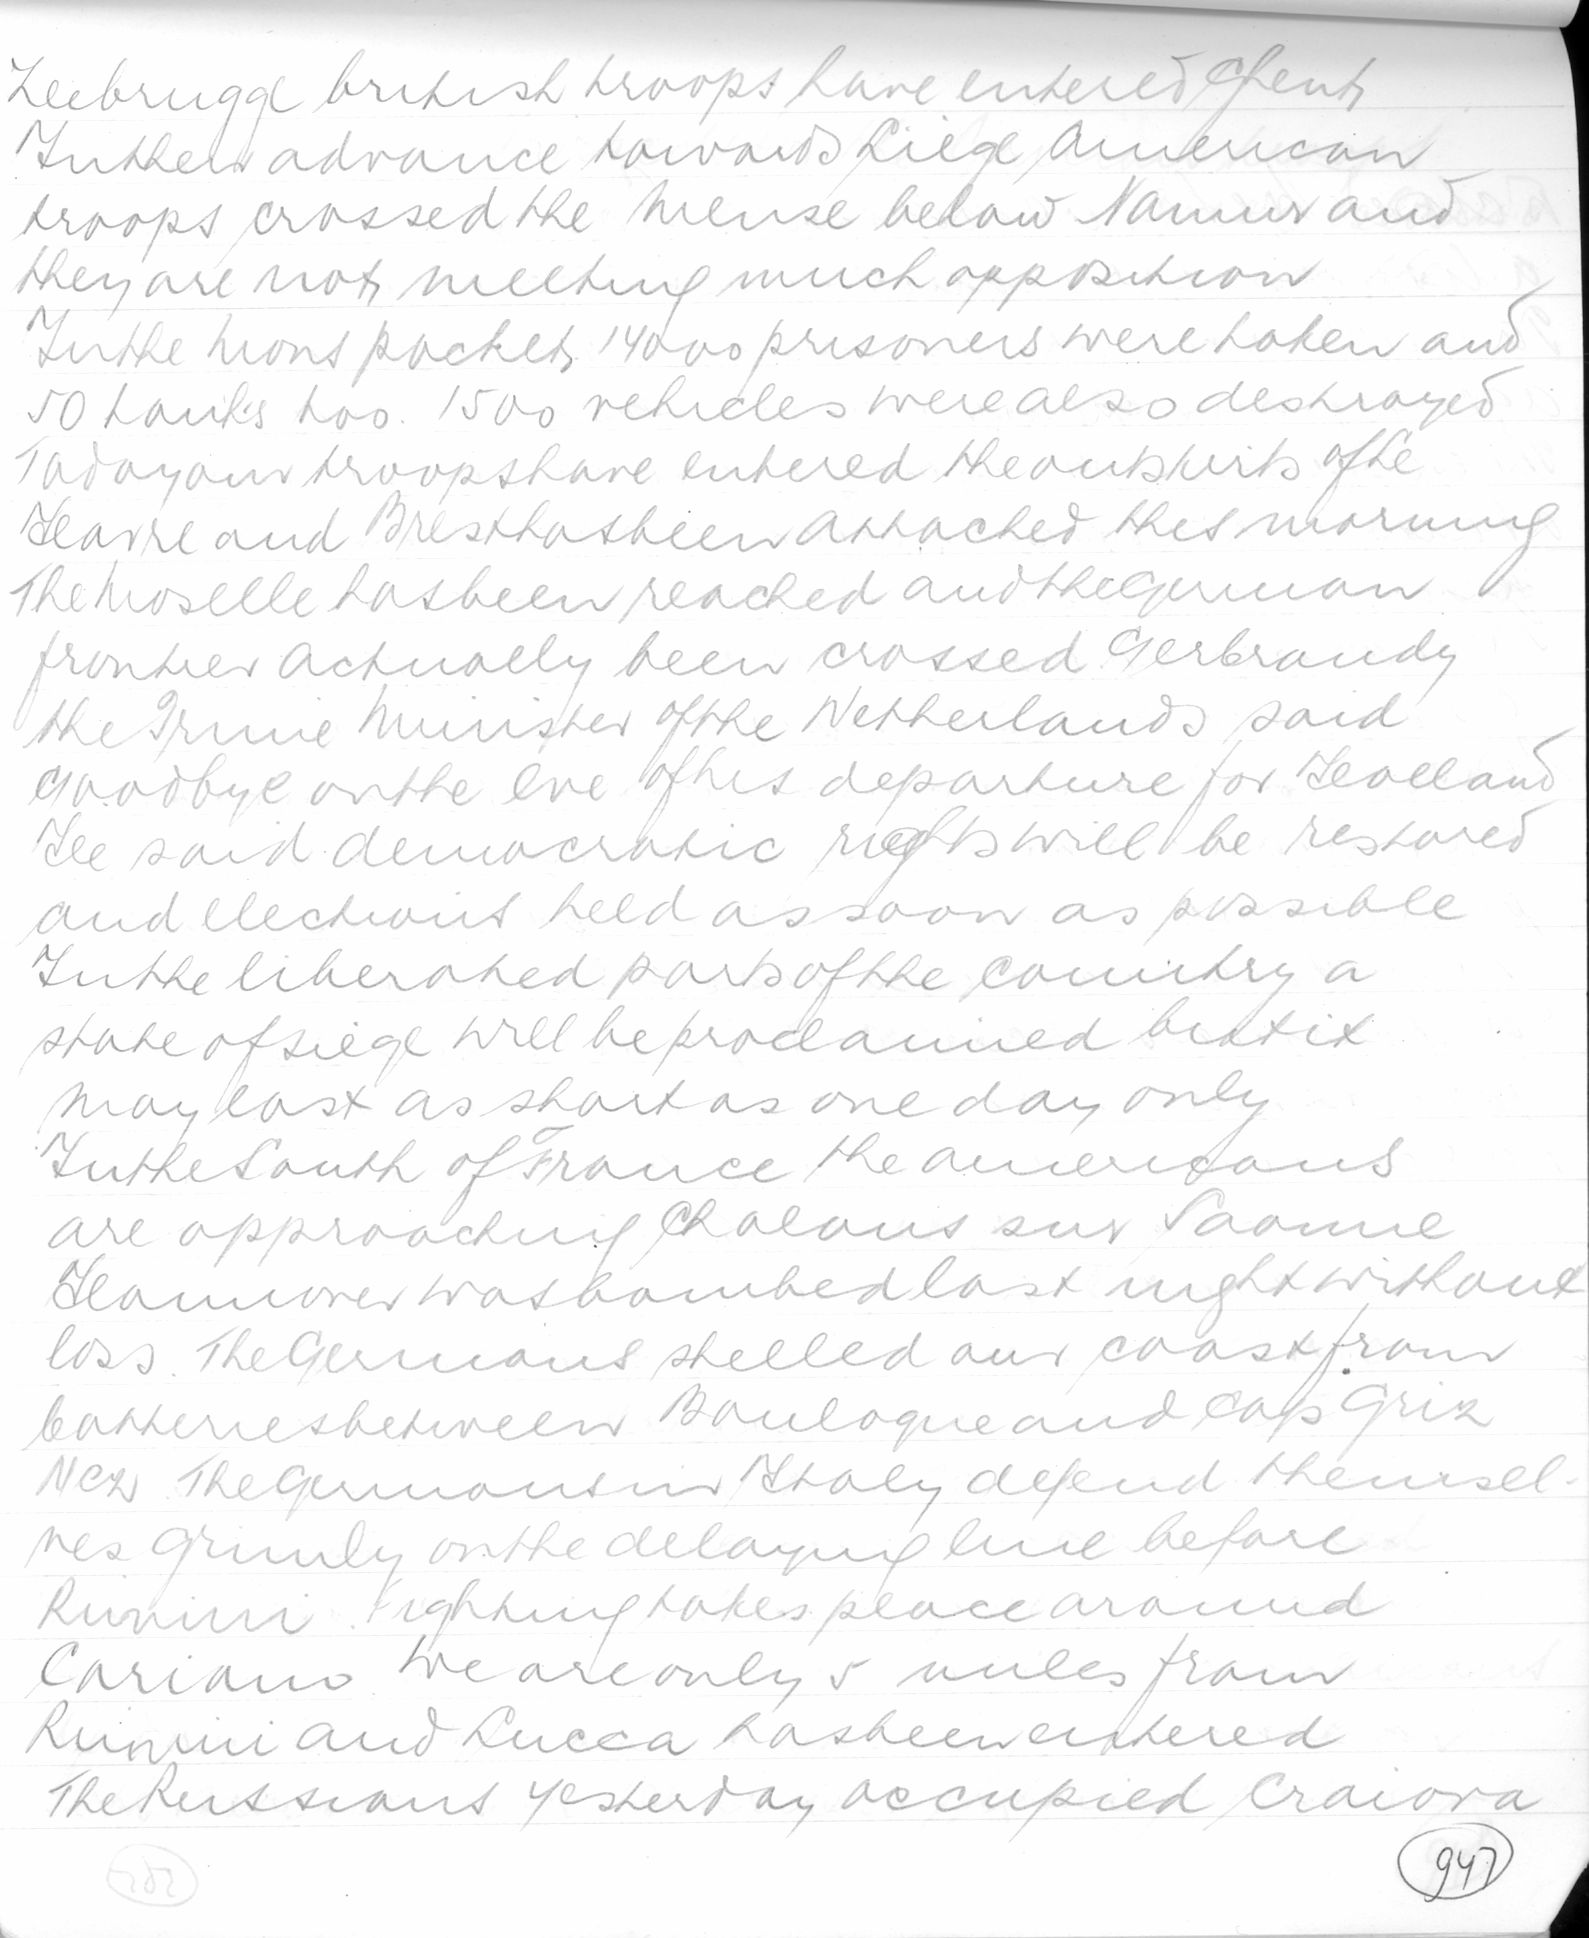 Zeebrugge british troops have entered Ghent
In their advance towards Liège American
troops crossed the Meuse below Namur and
they are not meeting much opposition
In the Mons pocket 14000 prisoners were taken and
50 tanks too. 1500 vehicles were also destroyed
Today our troops have entered the outskirts of Le
Havre and Brest has been attacked this morning
The Moselle has been reached and the German
frontier actually been crossed Gerbrandy
the Prime Minister of the Netherlands said
goodbye on the eve of his departure for Holland
He said democratic rights will be restored
and elections held as soon as possible
In the liberated parts of the country a
state of siege will be proclaimed but it
may last as short as one day only
In the South of France the americans
are approaching Chalons sur Saonne
Hannover was bombed last night without
loss. The Germans shelled our coast from
batteries between Boulogne and Cap Griz
Nez The Germans in Italy defend themsel-
ves grimly on the delaying line before
Rimini. Fighting takes place around
Coriano We are only 5 miles from
Rimini and Lucca has been entered
The Russians yesterday occupied Craiova
947